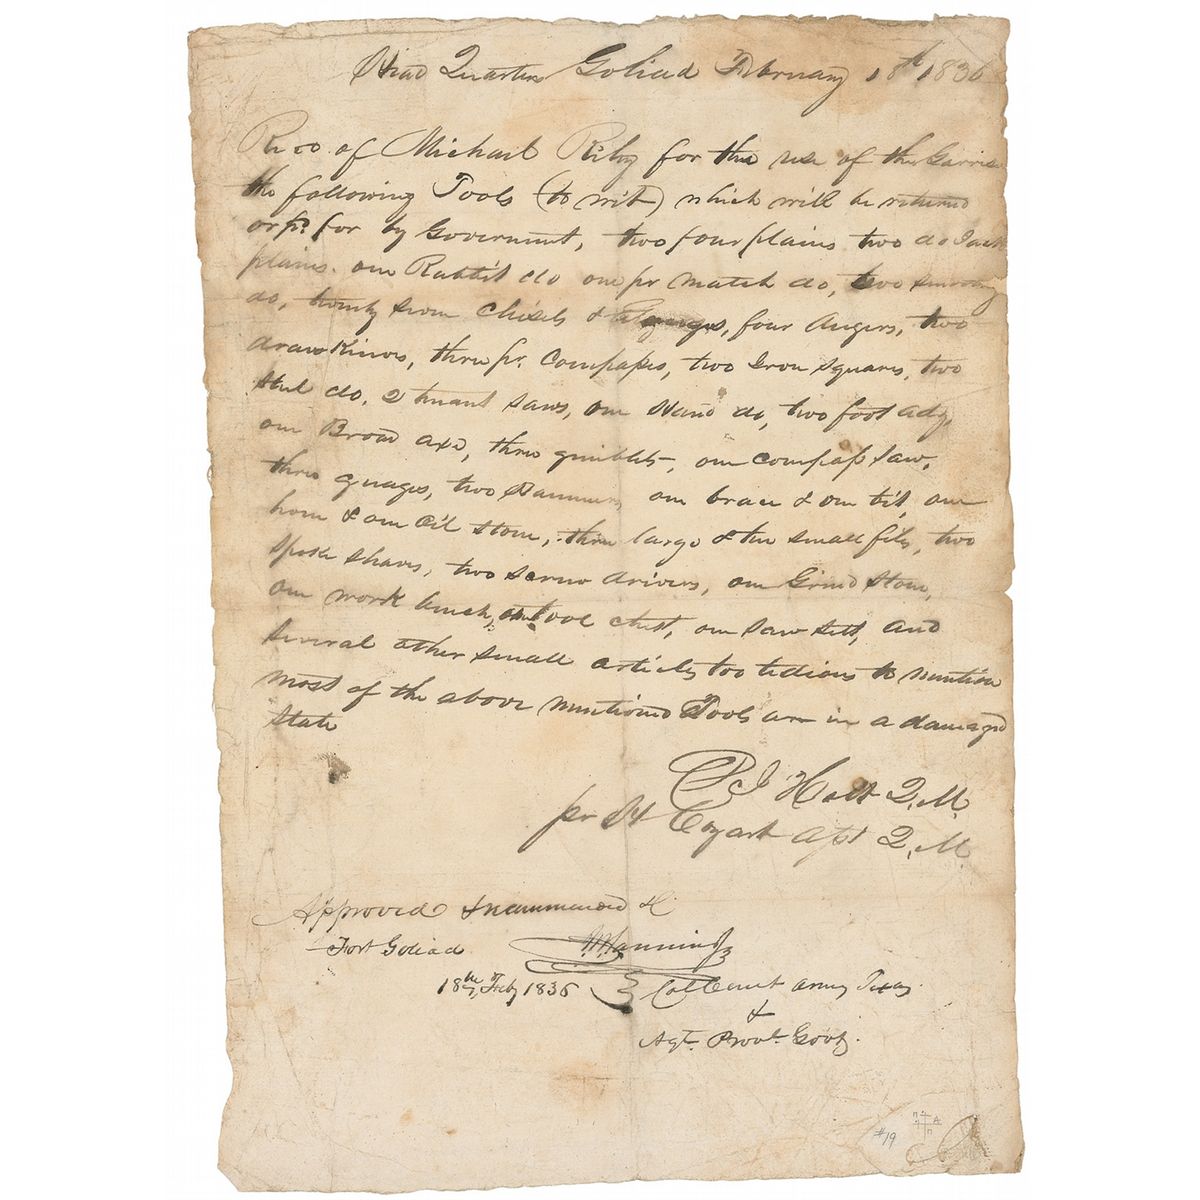 Head Quarters Goliad February 18th 1836
Recd. of Michael Rily for the use of the Garriso
the following Tools (to wit) which will be returned
or pd. for by Government, two four plains two do Jack
plains. one Rabbit do one pr match do, two smoothing
do, twenty seven Chisels & Gouges, four Augers, two
draw Knives, three pr. Compasses, two Iron Squares, two
steel do. 2 tenant saws, one Hand do, two foot adz,
one Broad axe, three gimblets, one compass saw,
three guages, two Hammers, one brace & one bit, one
hone & one Oil stone, three large & ten small files, two
spoke shaves, two screw drivers, one Grind stone,
one work bench, one tool chest, one saw sett, and
several other small articles too tedious to mention
most of the above mentioned Tools are in a damaged
State
P. J Holt Q.M.
pr H Cozart Asst Q.M.
Approved & recommended &c.
Fort Goliad
JW Fannin Jr
18th Feby 1836
Col Comt army Texas
&
Agt. Provl. Govt.
#19